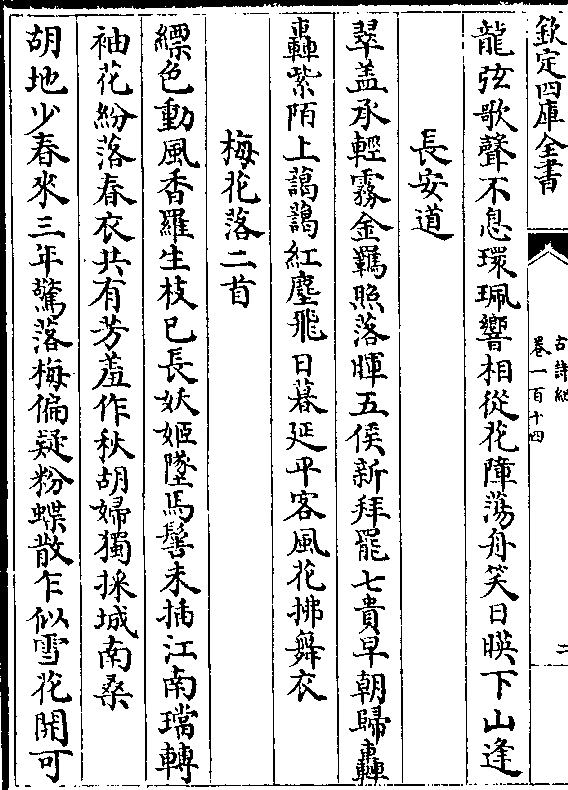 欽定四庫全書
古詩紀
卷一百十四
二
龍弦歌聲不息環珮響相從花障蕩舟笑日暎下山逢
長安道
翠盖承輕霧金羈照落暉五侯新拜罷七貴早朝歸轟
轟紫陌上藹藹紅塵飛日暮延平客風花拂舞衣
梅花落二首
縹色動風香羅生枝已長妖姬墜馬髻未插江南璫轉
袖花紛落春衣共有芳羞作秋胡婦獨採城南桑
胡地少春來三年驚落梅偏疑粉蝶散乍似雪花開可